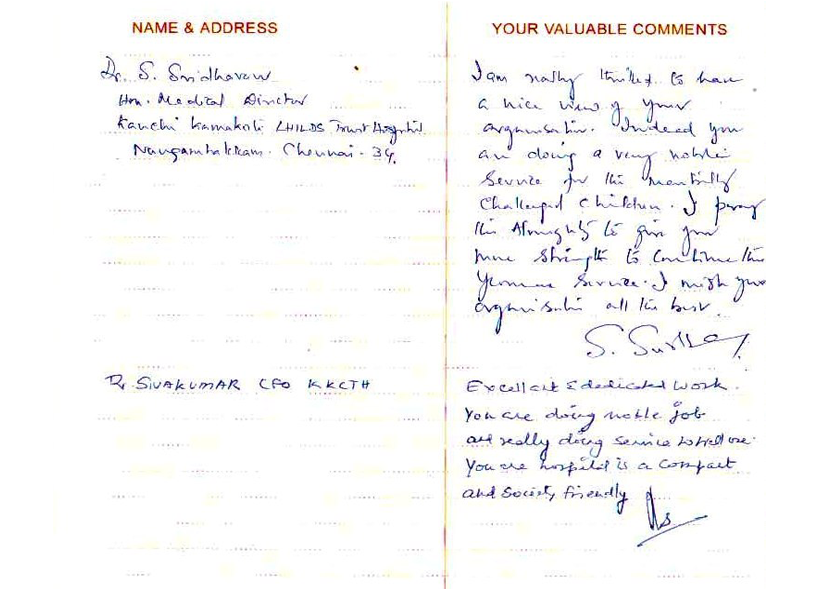 NAME & ADDRESS
Dr. S. Sridharan
Hon. Medical Director
Kanchi Kamakoti CHILDS Trust Hospital
Nungambakkam. Chennai - 34.
YOUR VALUABLE COMMENTS
I am really thrilled to have
a nice view of your
organisation. Indeed you
are doing a very noble
service for the mentally
Challenged Children. I pray
the Almighty to give you
more strength to continue the
Yeomen Service. I wish your
organisation all the best.
Dr SIVAKUMAR CFO KKCTH
Excellent & dedicated work.
You are doing noble job
are really doing service to
You are hospital is a compact
and society friendly